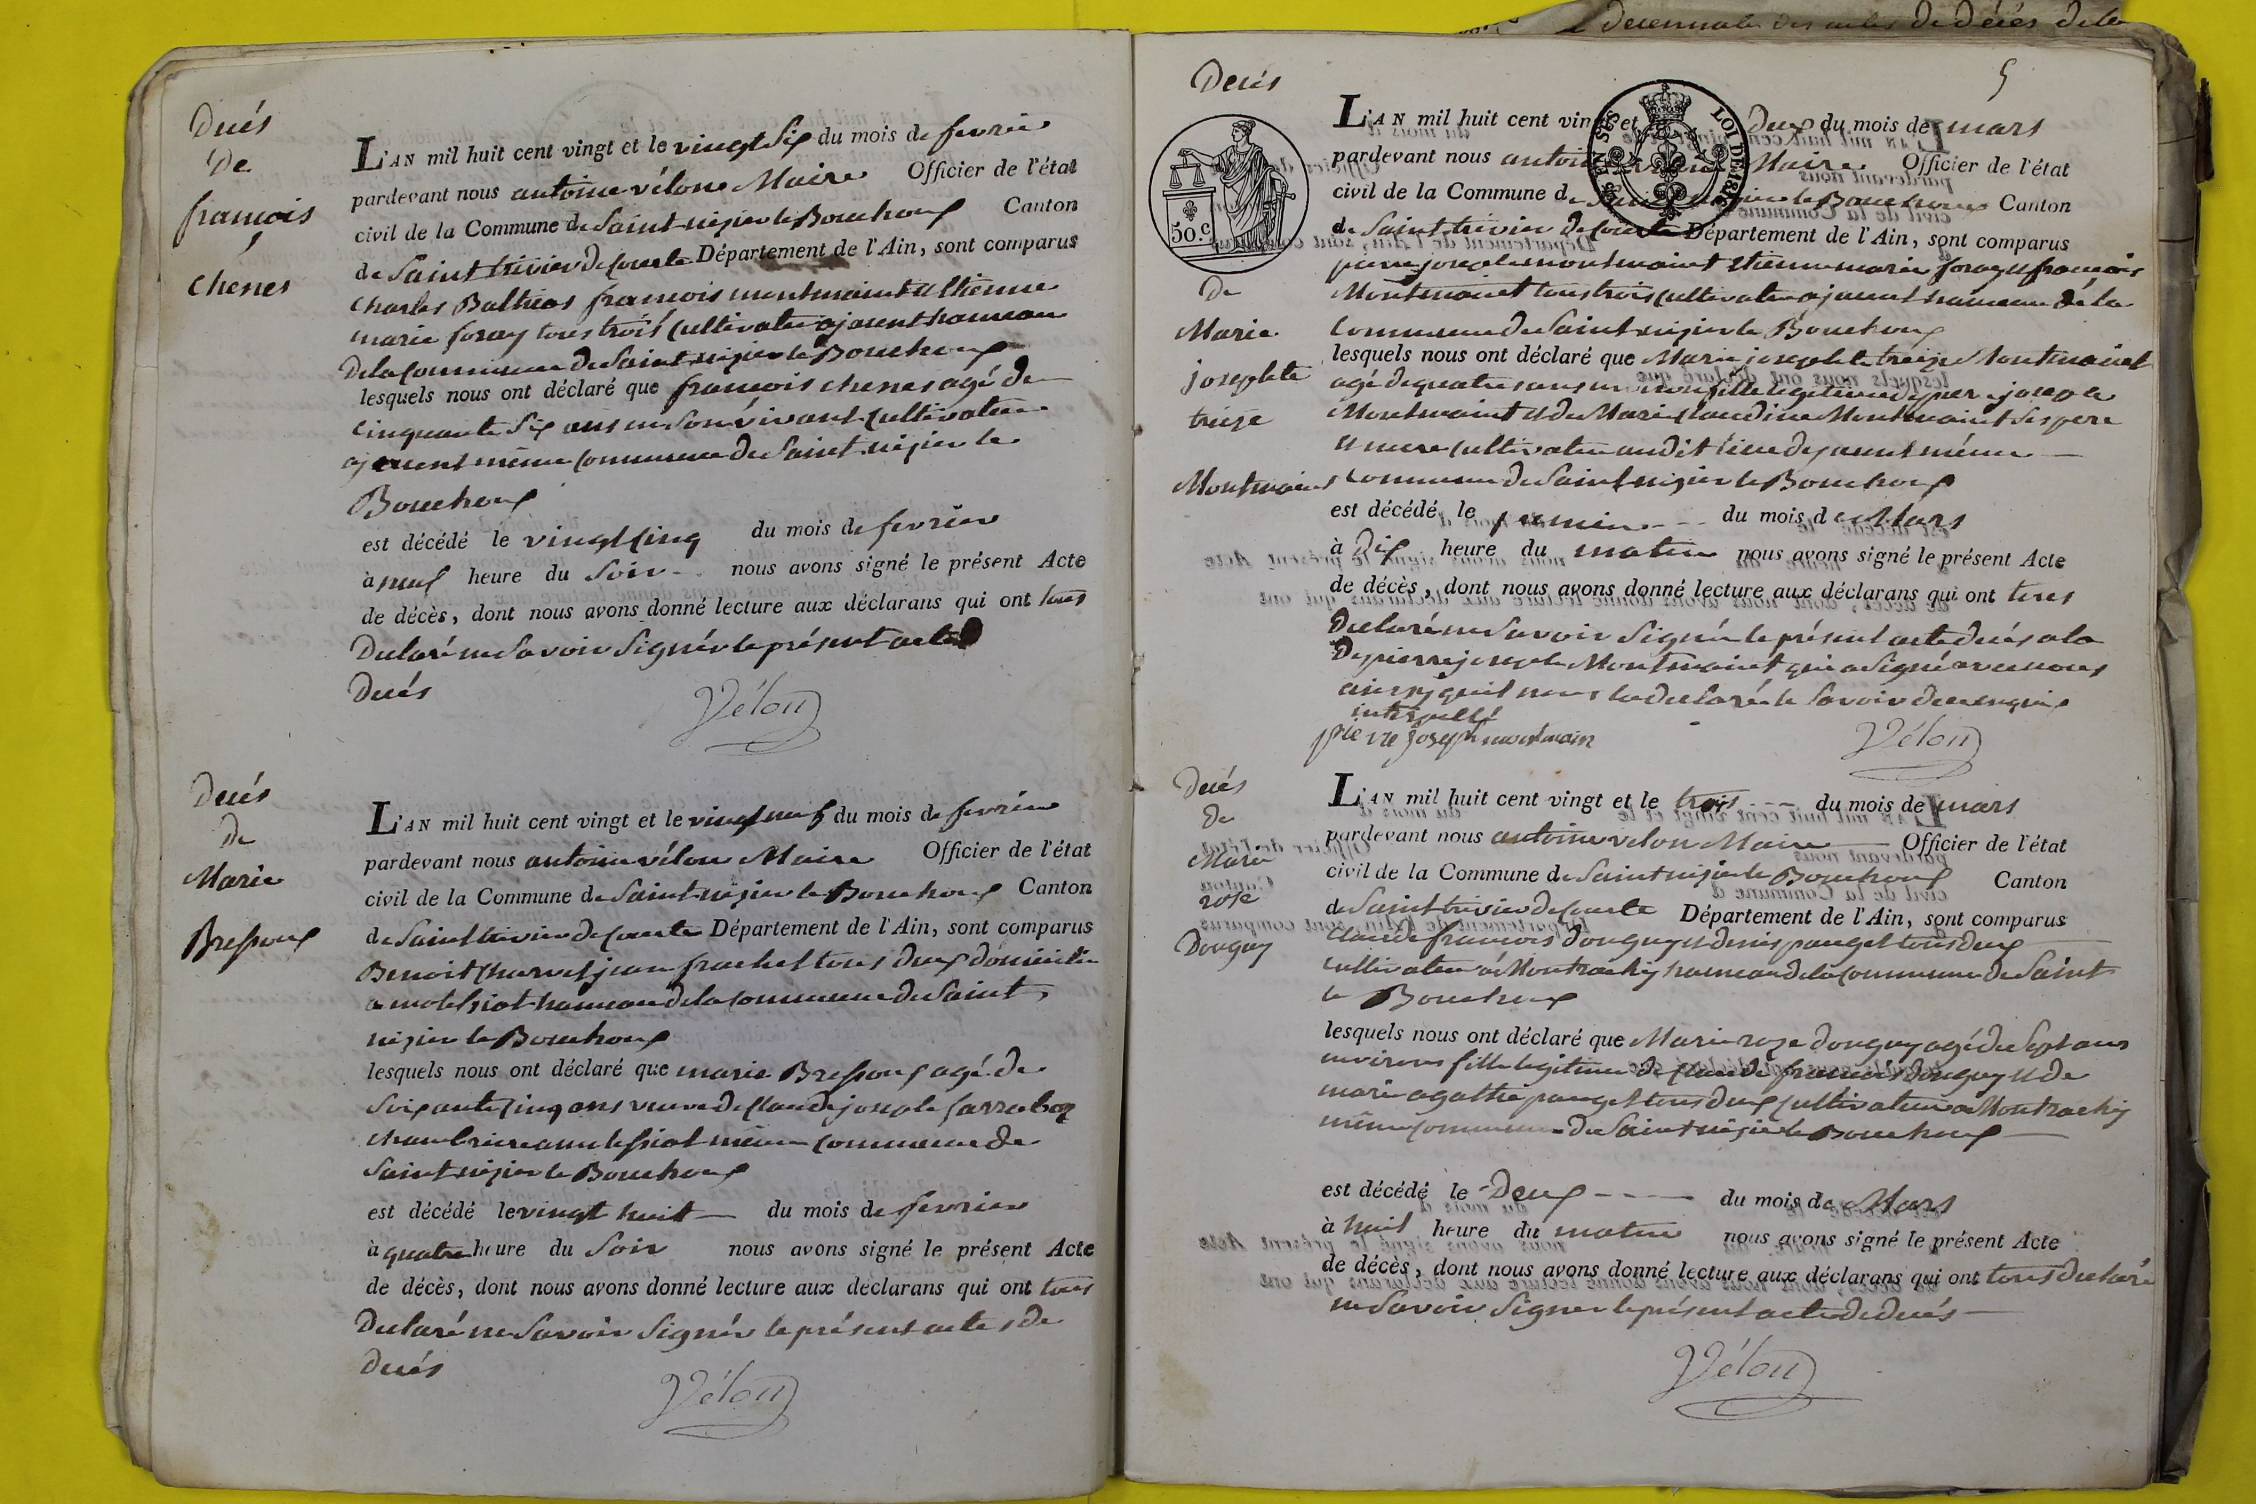 Decennale des actes de décés de la
Decés
De
francois
Chenes
L'AN mil huit cent vingt et le vingt Six du mois de fevrier
pardevant nous antoine vélon Maire Officier de l'état
civil de la Commune de Saint nizier le Bouchoux Canton
de Saint trivier de Courte Département de l'Ain, sont comparus
Charles Balthieas francois montmaint et thienne
marie foray tous trois Cultivateur ajanent hameau
De la Commune de Saint nizier le Bouchoux
lesquels nous ont déclaré que francois chenes agé de
Cinquante Six ans en Son vivant Cultivateur
même Commune de Saint nizier le
Bouchoux
est décédé le vingt Cinq du mois de fevrier
à neuf heure du Soir nous avons signé le présent Acte
de décès, dont nous avons donné lecture aux déclarans qui ont tous
Declaré ne Savoir Signér le présent acte
Decés
Vélon
Decés
De
Marie
Bressoux
L'AN mil huit cent vingt et le vingt neuf du mois de fevrier
pardevant nous antoine vélon Maire Officier de l'état
civil de la Commune de Saint nizier le Bouchoux Canton
de Saint trivier de Courte Département de l'Ain, sont comparus
Benoit Charvet jean frachet tous deux domicilié
hameau de la Commune de Saint
nizier le Bouchoux
lesquels nous ont déclaré que marie Bressoux agé de
Soixante Cinq ans veuve de Claude joseph
même Commune de
Saint nizier le Bouchoux
est décédé le vingt huit du mois de fevrier
à quatre heure du Soir nous avons signé le présent Acte
de décès, dont nous avons donné lecture aux déclarans qui ont tous
Declaré ne Savoir Signér le présent acte de
Decés
Vélon
5
Decés
50.c
LOI DE
De
Marie
josephte
treize
Montmaint
L'AN mil huit cent vingt et le Deux du mois de mars
pardevant nous antoine vélon Maire Officier de l'état
civil de la Commune de Saint nizier le Bouchoux Canton
de Saint trivier de Courte Département de l'Ain, sont comparus
pierre joseph montmaint thienne marie foray et francois
Montmaint tous trois Cultivateur ajanent hameau de la
Commune de Saint nizier le Bouchoux
lesquels nous ont déclaré que Marie josephte treize Montmaint
agé de quatre ans environ fille legitime de pierre joseph
Montmaint et de Marie Claudine Montmaint Ses pere
et mere Cultivateur audit lieu dejanent même
Commune de Saint nizier le Bouchoux
est décédé le premier du mois de Mars
à Dix heure du matin nous avons signé le présent Acte
de décès, dont nous avons donné lecture aux déclarans qui ont tous
Declaré ne Savoir Signér le présent acte
De pierre joseph Montmaint qui a Signé avec nous
ainsy quil nous la declaré le Savoir de ce enquis
interpellé
pierre joseph montmain
Vélon
Decés
De
Marie
rose
Douguy
L'AN mil huit cent vingt et le trois du mois de mars
pardevant nous antoine velon Maire Officier de l'état
civil de la Commune de Saint nizier le Bouchoux Canton
de Saint trivier de Courte Département de l'Ain, sont comparus
Claude francois douguy et denis pauget tous deux
Cultivateur à Montrachy hameau de la Commune de Saint
le Bouchoux
lesquels nous ont déclaré que Marie roze douguy agé de Sept ans
environs fille legitime de Claude francois douguy et de
marie agathe pauget tous deux Cultivateur a Montrachy
même Commune de Saint nizier le Bouchoux
est décédé le Deux du mois de Mars
à huit heure du matin nous avons signé le présent Acte
de décès, dont nous avons donné lecture aux déclarans qui ont tous declaré
ne Savoir Signer le présent acte de decés
Vélon